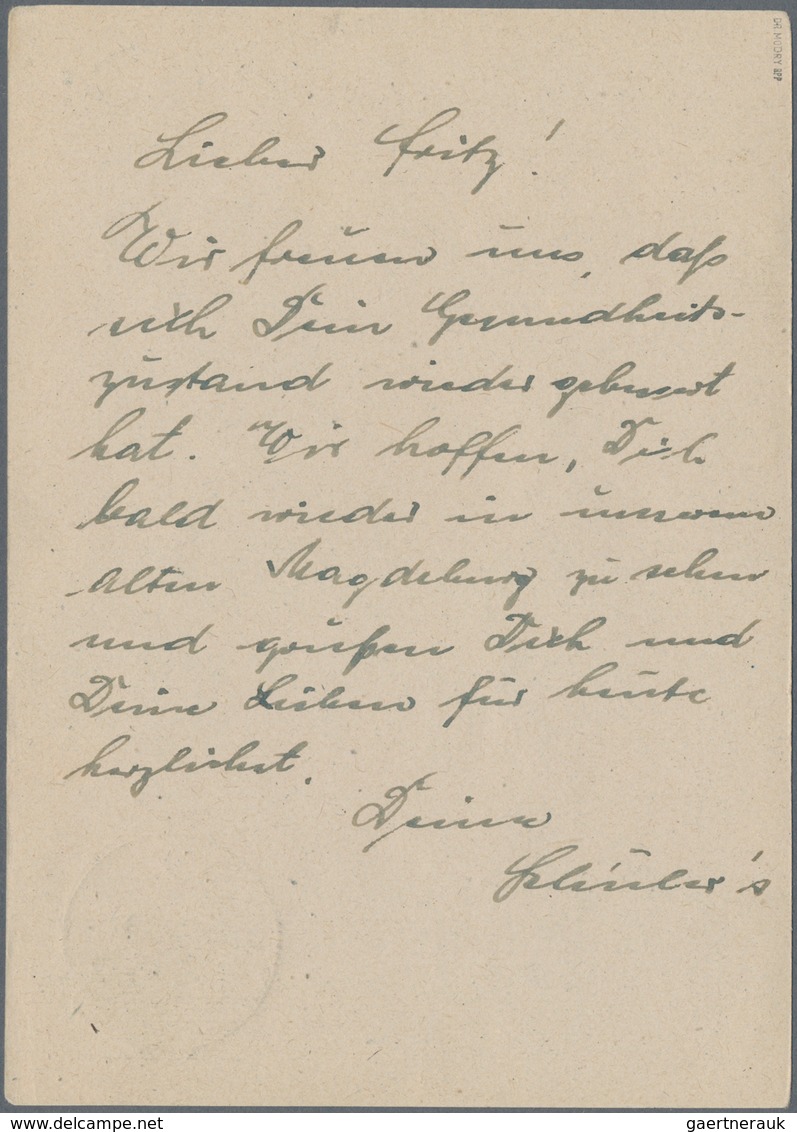 DR. MODRY BPP
Lieber Fritz!
Wir freuen uns, daß
sich Dein Gesundheits-
zustand wieder gebessert
hat. Wir hoffen, Dich
bald wieder in unserem
alten Magdeburg zu sehen
und grüßen Dich und
Deine Lieben für heute
herzlichst.
Deine
gaertnerauk